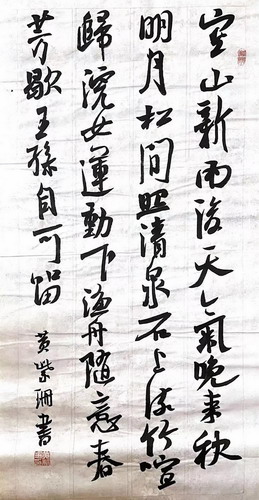 空山新雨後天氣晚来秋
明月松間照清泉石上流竹喧
歸浣女蓮動下漁舟隨意春
芳歇王孫自可留
黃紫珊書